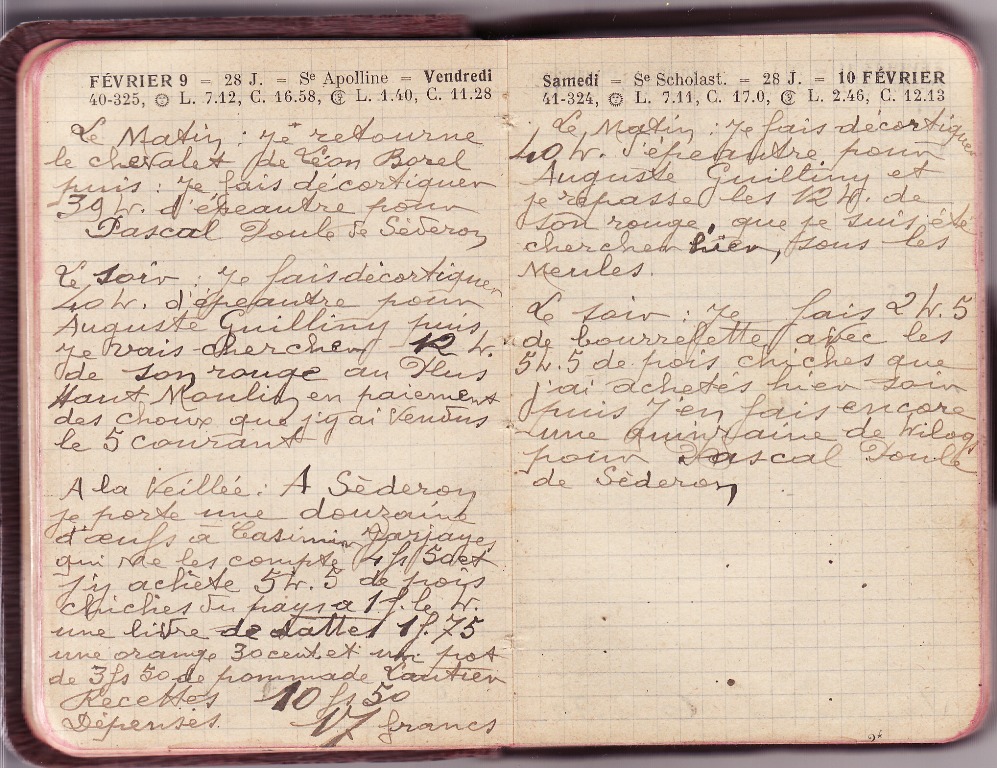 FÉVRIER 9 = 28 J. = Sᵉ Apolline = Vendredi
40-325, L. 7.12, C. 16.58, L. 1.40, C. 11.28
Le Matin : Je retourne
le chevalet de Léon Borel
puis : Je fais décortiquer
39 k. d'épeautre pour
Pascal Doule de Séderon
Le soir : Je fais décortiquer
40 k. d'épeautre pour
Auguste Guilliny puis
je vais chercher 12 k.
de son rouge au Plus
Haut Moulin en paiement
des choux que j'y ai vendus
le 5 courant
A la Veillée : A Séderon
je porte une douzaine
d'œufs à Casimir Jarjayes
qui me les compte 4 fs 50 et
j'y achète 5 k. 5 de pois
chiches du pays a 1 f. le k.
une livre de dattes 1 f. 75
une orange 30 cent et un pot
de 3 fs 50 de pommade Cautier
Recettes 10 fs 50
Dépenses 17 francs
Samedi = Sᵉ Scholast. = 28 J. = 10 FÉVRIER
41-324, L. 7.11, C. 17.0, L. 2.46, C. 12.13
Le Matin : Je fais décortiquer
40 k. d'épeautre pour
Auguste Guilliny et
je repasse les 12 k. de
son rouge, que je suis été
chercher hier, sous les
Meules.
Le soir : Je fais 2 k. 5
de bourrelette avec les
5 k. 5 de pois chiches que
j'ai achetés hier soir
puis J'en fais encore
une quinzaine de kilogs
pour Pascal Doule
de Séderon